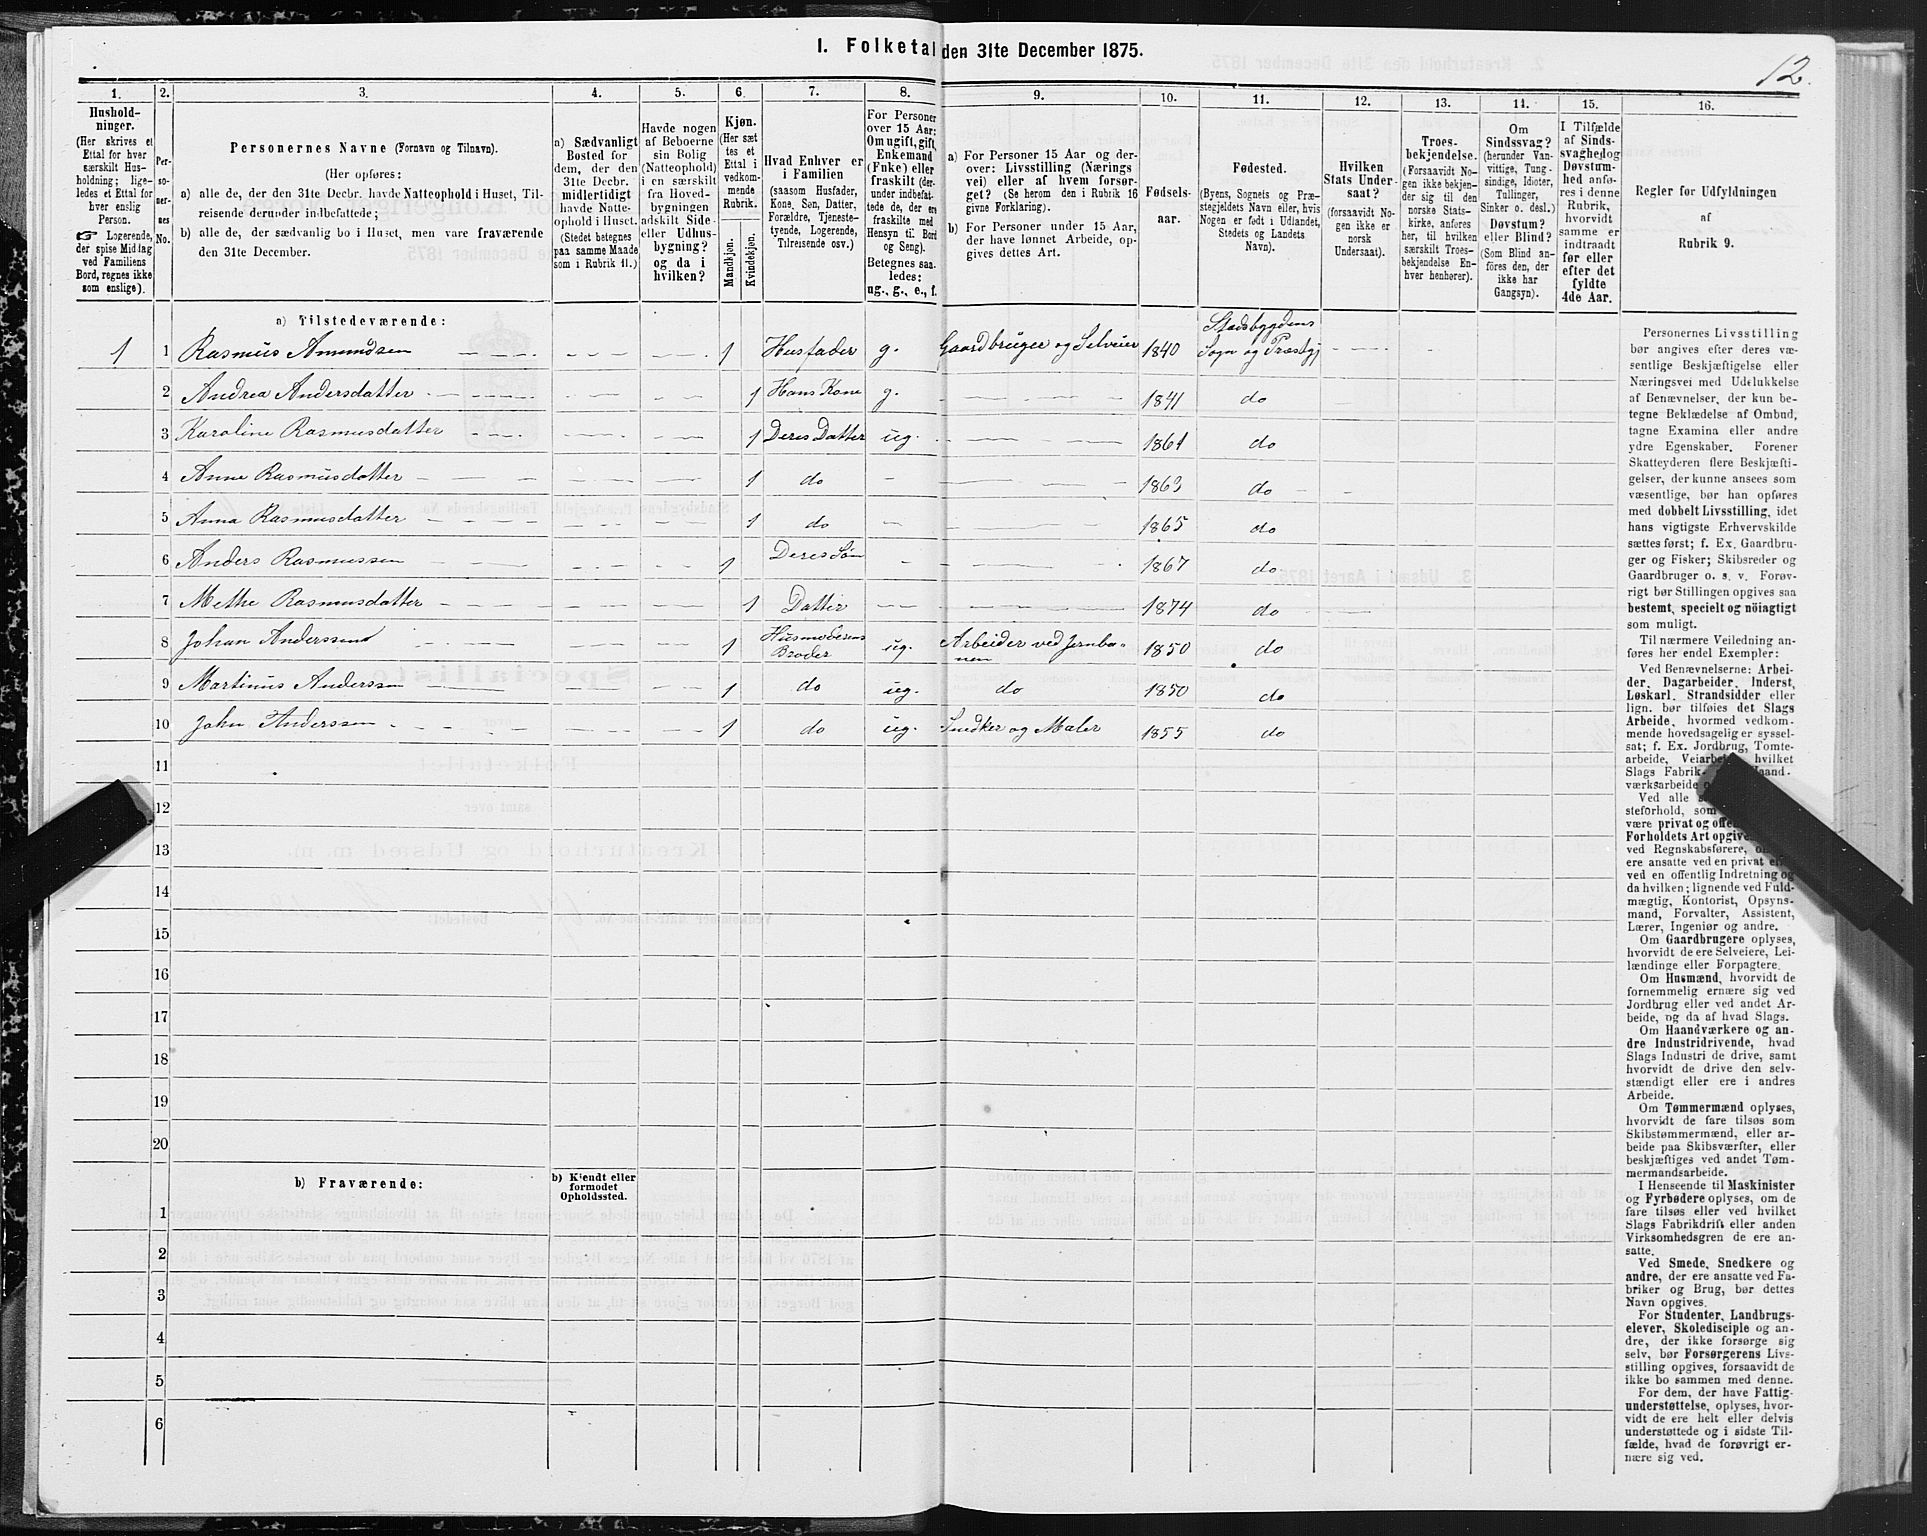 I. Folketal den 31te December 1875.
12.
1. 2. 3. 4. 5. 6. 7. 8. 9. 10. 11. 12. 13. 14. 15. 16.
Hushold-
ninger.
(Her skrives et
Ettal for hver
særskilt Hus-
holdning; lige-
ledes et Ettal for
hver enslig
Person.
☞ Logerende,
der spise Middag
ved Familiens
Bord, regnes ikke
som enslige).
Per-
so-
ner-
nes
No.
Personernes Navne (Fornavn og Tilnavn).
(Her opføres:
a) alle de, der den 31te Decbr. havde Natteophold i Huset, Til-
reisende derunder indbefattede;
b) alle de, der sædvanlig bo i Huset, men vare fraværende
den 31te December.
a) Sædvanligt
Bosted for
dem, der den
31te Decbr.
midlertidigt
havde Natte-
ophold i Huset.
(Stedet betegnes
paa samme Maade
som i Rubrik 11.)
Havde nogen
af Beboerne
sin Bolig
(Natteophold)
i en særskilt
fra Hoved-
bygningen
adskilt Side-
eller Udhus-
bygning?
og da i
hvilken?
Kjøn.
(Her sæt-
tes et
Ettal i
vedkom-
mende
Rubrik.
Mandkjøn.
Kvindekjøn.
Hvad Enhver er
i Familien
(saasom Husfader,
Kone, Søn, Datter,
Forældre, Tjeneste-
tyende, Logerende,
Tilreisende osv.)
For Personer
over 15 Aar:
Om ugift, gift,
Enkemand
(Enke) eller
fraskilt (der-
under indbefat-
tede de, der ere
fraskilte med
Hensyn til Bord
og Seng).
Betegnes saa-
ledes:
ug., g., e., f.
a) For Personer 15 Aar og der-
over: Livsstilling (Nærings
vei) eller af hvem forsør-
get? (Se herom den i Rubrik 16
givne Forklaring).
b) For Personer under 15 Aar,
der have lønnet Arbeide, op-
gives dettes Art.
Fødsels-
aar.
Fødested.
(Byens, Sognets og Præ-
stegjeldets Navn eller, hvis
Nogen er født i Udlandet,
Stedets og Landets
Navn).
Hvilken
Stats Under-
saat?
(forsaavidt No-
gen ikke er
norsk
Undersaat).
Troes-
bekjendelse.
(Forsaavidt No-
gen ikke bekjen-
der sig til den
norske Stats-
kirke, anføres
her, til hvilken
særskilt Troes-
bekjendelse En-
hver henhører).
Om
Sindssvag?
(herunder Van-
vittige, Tung-
sindige, Idioter,
Tullinger,
Sinker o. desl.)
Døvstum?
eller Blind?
(Som Blind an-
føres den, der
ikke har
Gangsyn).
I Tilfælde
af Sinds-
svaghed og
Døvstum-
hed anfø-
res i denne
Rubrik,
hvorvidt
samme er
indtraadt
før eller
efter det
fyldte
4de Aar.
Regler før Udfyldningen
af
Rubrik 9.
a) Tilstedeværende:
1 1 Rasmus Amundsen 1 Husfader g. Gaardbruger og Selveier 1840 Stadsbygdens Sogn og Præstgj
2 Andrea Andersdatter 1 Hans Kone g. 1841 do
3 Karoline Rasmusdatter 1 Deres Datter ug. 1861 do
4 Anne Rasmusdatter 1 do 1863 do
5 Anna Rasmusdatter 1 do 1865 do
6 Anders Rasmussen 1 Deres Søn 1867 do
7 Methe Rasmusdatter 1 Datter 1874 do
8 Johan Anderssen 1 Husmoderens Broder ug. Arbeider ved Jernbanen 1850 do
9 Martinus Anderssen 1 do ug. do 1850 do
10 John Anderssen 1 do ug. Snedker og Maler 1855 do
11
12
13
14
15
16
17
18
19
20
b) Fraværende:
b) Kjendt eller
formodet
Opholdssted.
1
2
3
4
5
6
Personernes Livsstilling
bør angives efter deres væ-
sentlige Beskjæftigelse eller
Næringsvei med Udelukkelse
af Benævnelser, der kun be-
tegne Beklædelse af Ombud,
tagne Examina eller andre
ydre Egenskaber. Forener
Skatteyderen flere Beskjæfti-
gelser, der kunne ansees som
væsentlige, bør han opføres
med dobbelt Livsstilling, idet
hans vigtigste Erhvervskilde
sættes først; f. Ex. Gaardbru-
ger og Fisker; Skibsreder og
Gaardbruger o. s. v. Forøv-
rigt bør Stillingen opgives saa
bestemt, specielt og nöiagtigt
som muligt.
Til nærmere Veiledning an-
føres her endel Exempler:
Ved Benævnelserne: Arbei-
der, Dagarbeider, Inderst,
Løskarl, Strandsidder eller
lign. bør tilføies det Slags
Arbeide, hvormed vedkom-
mende hovedsagelig er syssel-
sat; f. Ex. Jordbrug, Tomte-
arbeide, hvilket
Slags Fabrik-
værksarbeide
Ved alle
steforhold, som
være privat og
Forholdets Art
ved Regnskabsførere,
ere ansatte ved en privat
ved en offentlig Indretning og
da hvilken; lignende ved Fuld-
mægtig, Kontorist, Opsyns-
mand, Forvalter, Assistent,
Lærer, Ingeniør og andre.
Om Gaardbrugere oplyses,
hvorvidt de ere Selveiere, Lei-
lændinge eller Forpagtere.
Om Husmænd, hvorvidt de
fornemmelig ernære sig ved
Jordbrug eller ved andet Ar-
beide, og da af hvad Slags.
Om Haandværkere og an-
dre Industridrivende, hvad
Slags Industri de drive, samt
hvorvidt de drive den selv-
stændigt eller ere i andres
Arbeide.
Om Tømmermænd oplyses,
hvorvidt de fare tilsøs som
Skibstømmermænd, eller ar-
beide paa Skibsværfter, eller
beskjæftiges ved andet Tøm-
mermandsarbeide.
I Henseende til Maskinister
og Fyrbødere oplyses, om de
fare tilsøs eller ved hvilket
Slags Fabrikdrift eller anden
Virksomhedsgren de ere an-
satte.
Ved Smede, Snedkere og
andre, der ere ansatte ved Fa-
briker og Brug, bør dettes
Navn opgives.
For Studenter, Landbrugs-
elever, Skoledisciple og an-
dre, der ikke forsørge sig
selv, bør Forsørgerens Livs-
stilling opgives, forsaavidt de
ikke bo sammen med denne.
For dem, der have Fattig-
understøttelse, oplyses, hvor-
vidt de ere helt eller delvis
understøttede og i sidste Til-
fælde, hvad de forøvrigt er-
nære sig ved.